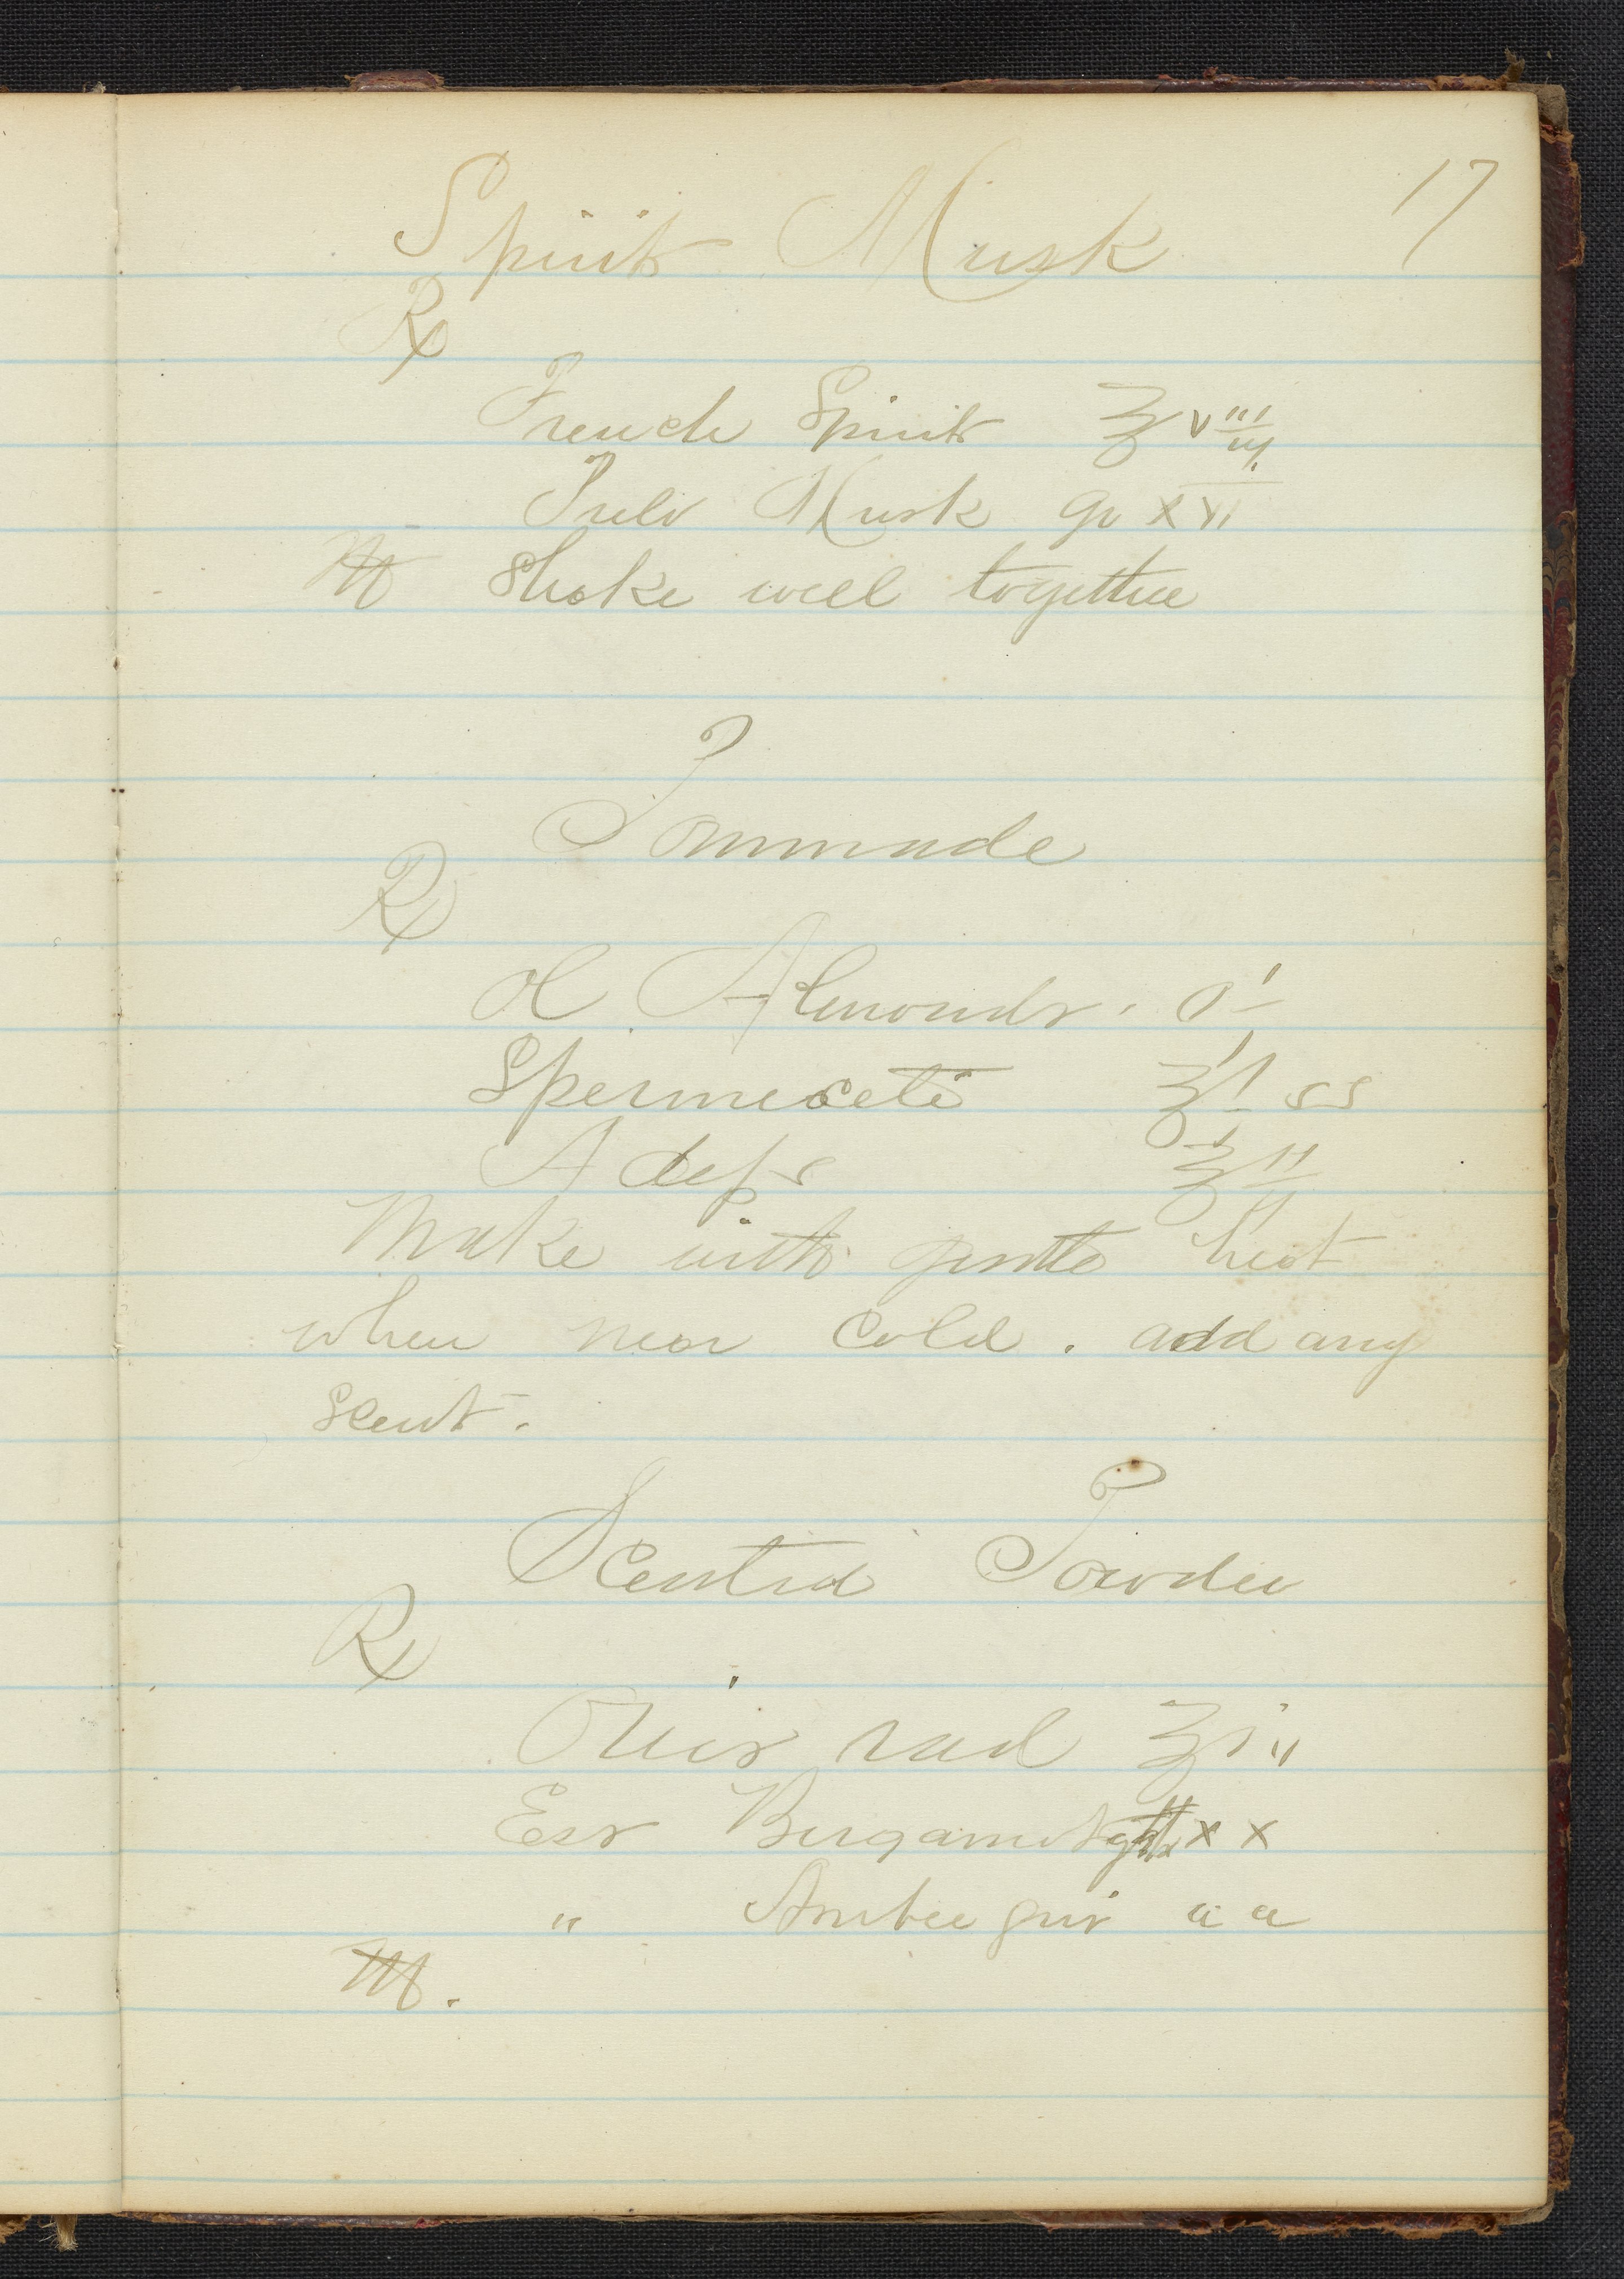 17
Spirit Musk
℞
French Spirit ℥ viii
Pulv Musk gr xvi
M Shake well together
Pommade
℞
Ol Almonds. O i
Spermeceti ℥ i ss
Adeps ℥ ii
Make with gentle heat
when near Cold. add any
Scent.
Scented Powder
℞
Orris rad
Ess Bergamot gtt x x
" Ambergris a a
M.